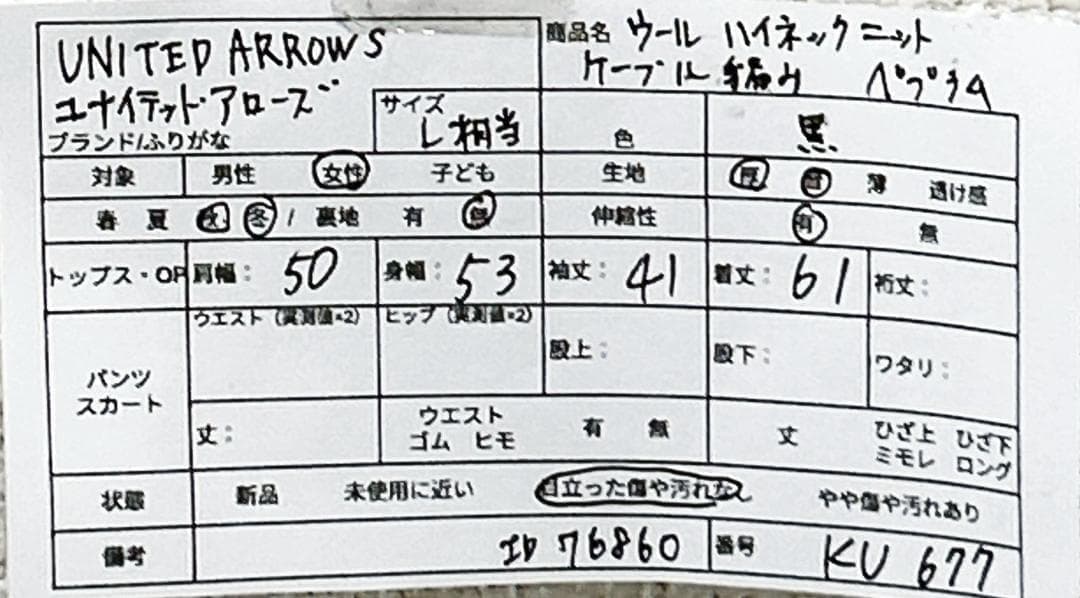 UNITED ARROWS
ユナイテッド・アローズ
ブランド/ふりがな
商品名 ウール ハイネックニット
ケーブル 手編み ペプラム
サイズ
L相当
色
黒
対象 男性 女性 子ども 生地 厚 普 薄 透け感
春 夏 秋 冬 / 裏地 有 無 伸縮性 有 無
トップス・OP 肩幅: 50 身幅: 53 袖丈: 41 着丈: 61 裄丈:
パンツ
スカート
ウエスト (実測値×2) ヒップ (実測値×2)
股上: 股下: ワタリ:
丈:
ウエスト
ゴム ヒモ
有 無
丈
ひざ上 ひざ下
ミモレ ロング
状態 新品 未使用に近い 目立った傷や汚れなし やや傷や汚れあり
備考 ID 76860 番号 KU 677